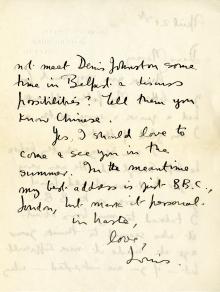 not meet Denis Johnston some
time in Belfast & discuss
possibilities? Tell them you
know Chinese.
Yes, I should love to
come & see you in the
summer. In the meantime
my best address is just B.B.C.,
London, but mark it personal.
In haste,
love,
Louis.